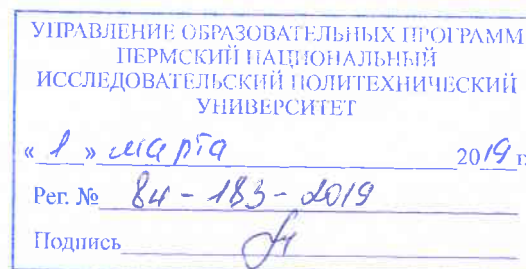 УПРАВЛЕНИЕ ОБРАЗОВАТЕЛЬНЫХ ПРОГРАММ
ПЕРМСКИЙ НАЦИОНАЛЬНЫЙ
ИССЛЕДОВАТЕЛЬСКИЙ ПОЛИТЕХНИЧЕСКИЙ
УНИВЕРСИТЕТ
« 1 » марта 2019 г.
Рег. № 84-183-2019
Подпись